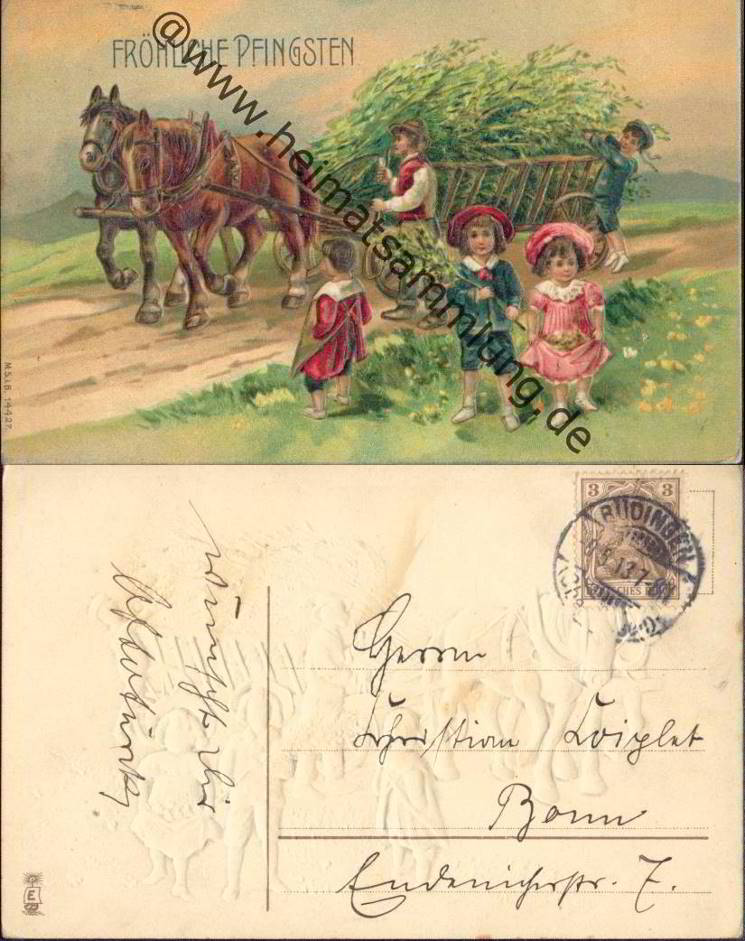 FRÖHLICHE PFINGSTEN
@www.heimatsammlung.de
M.S.i.B. 14427.
3 3
BÜDINGEN
5.13.7-
DEUTSCHES REICH
wünscht dir
Herrn
Christian
Bonn
Endenicherstr. 7.
E